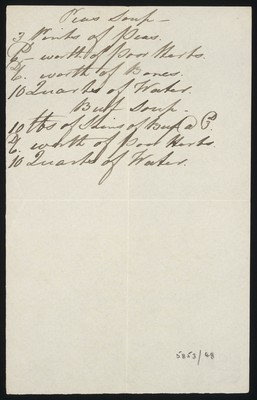 Peas Soup -
3 Pints of Peas.
6d worth of Poor Herbs.
worth of Bones.
10 Quarts of Water.
Beef Soup -
10 lbs of Shins of Beef
worth of Poor Herbs.
10 Quarts of Water.
5253/48